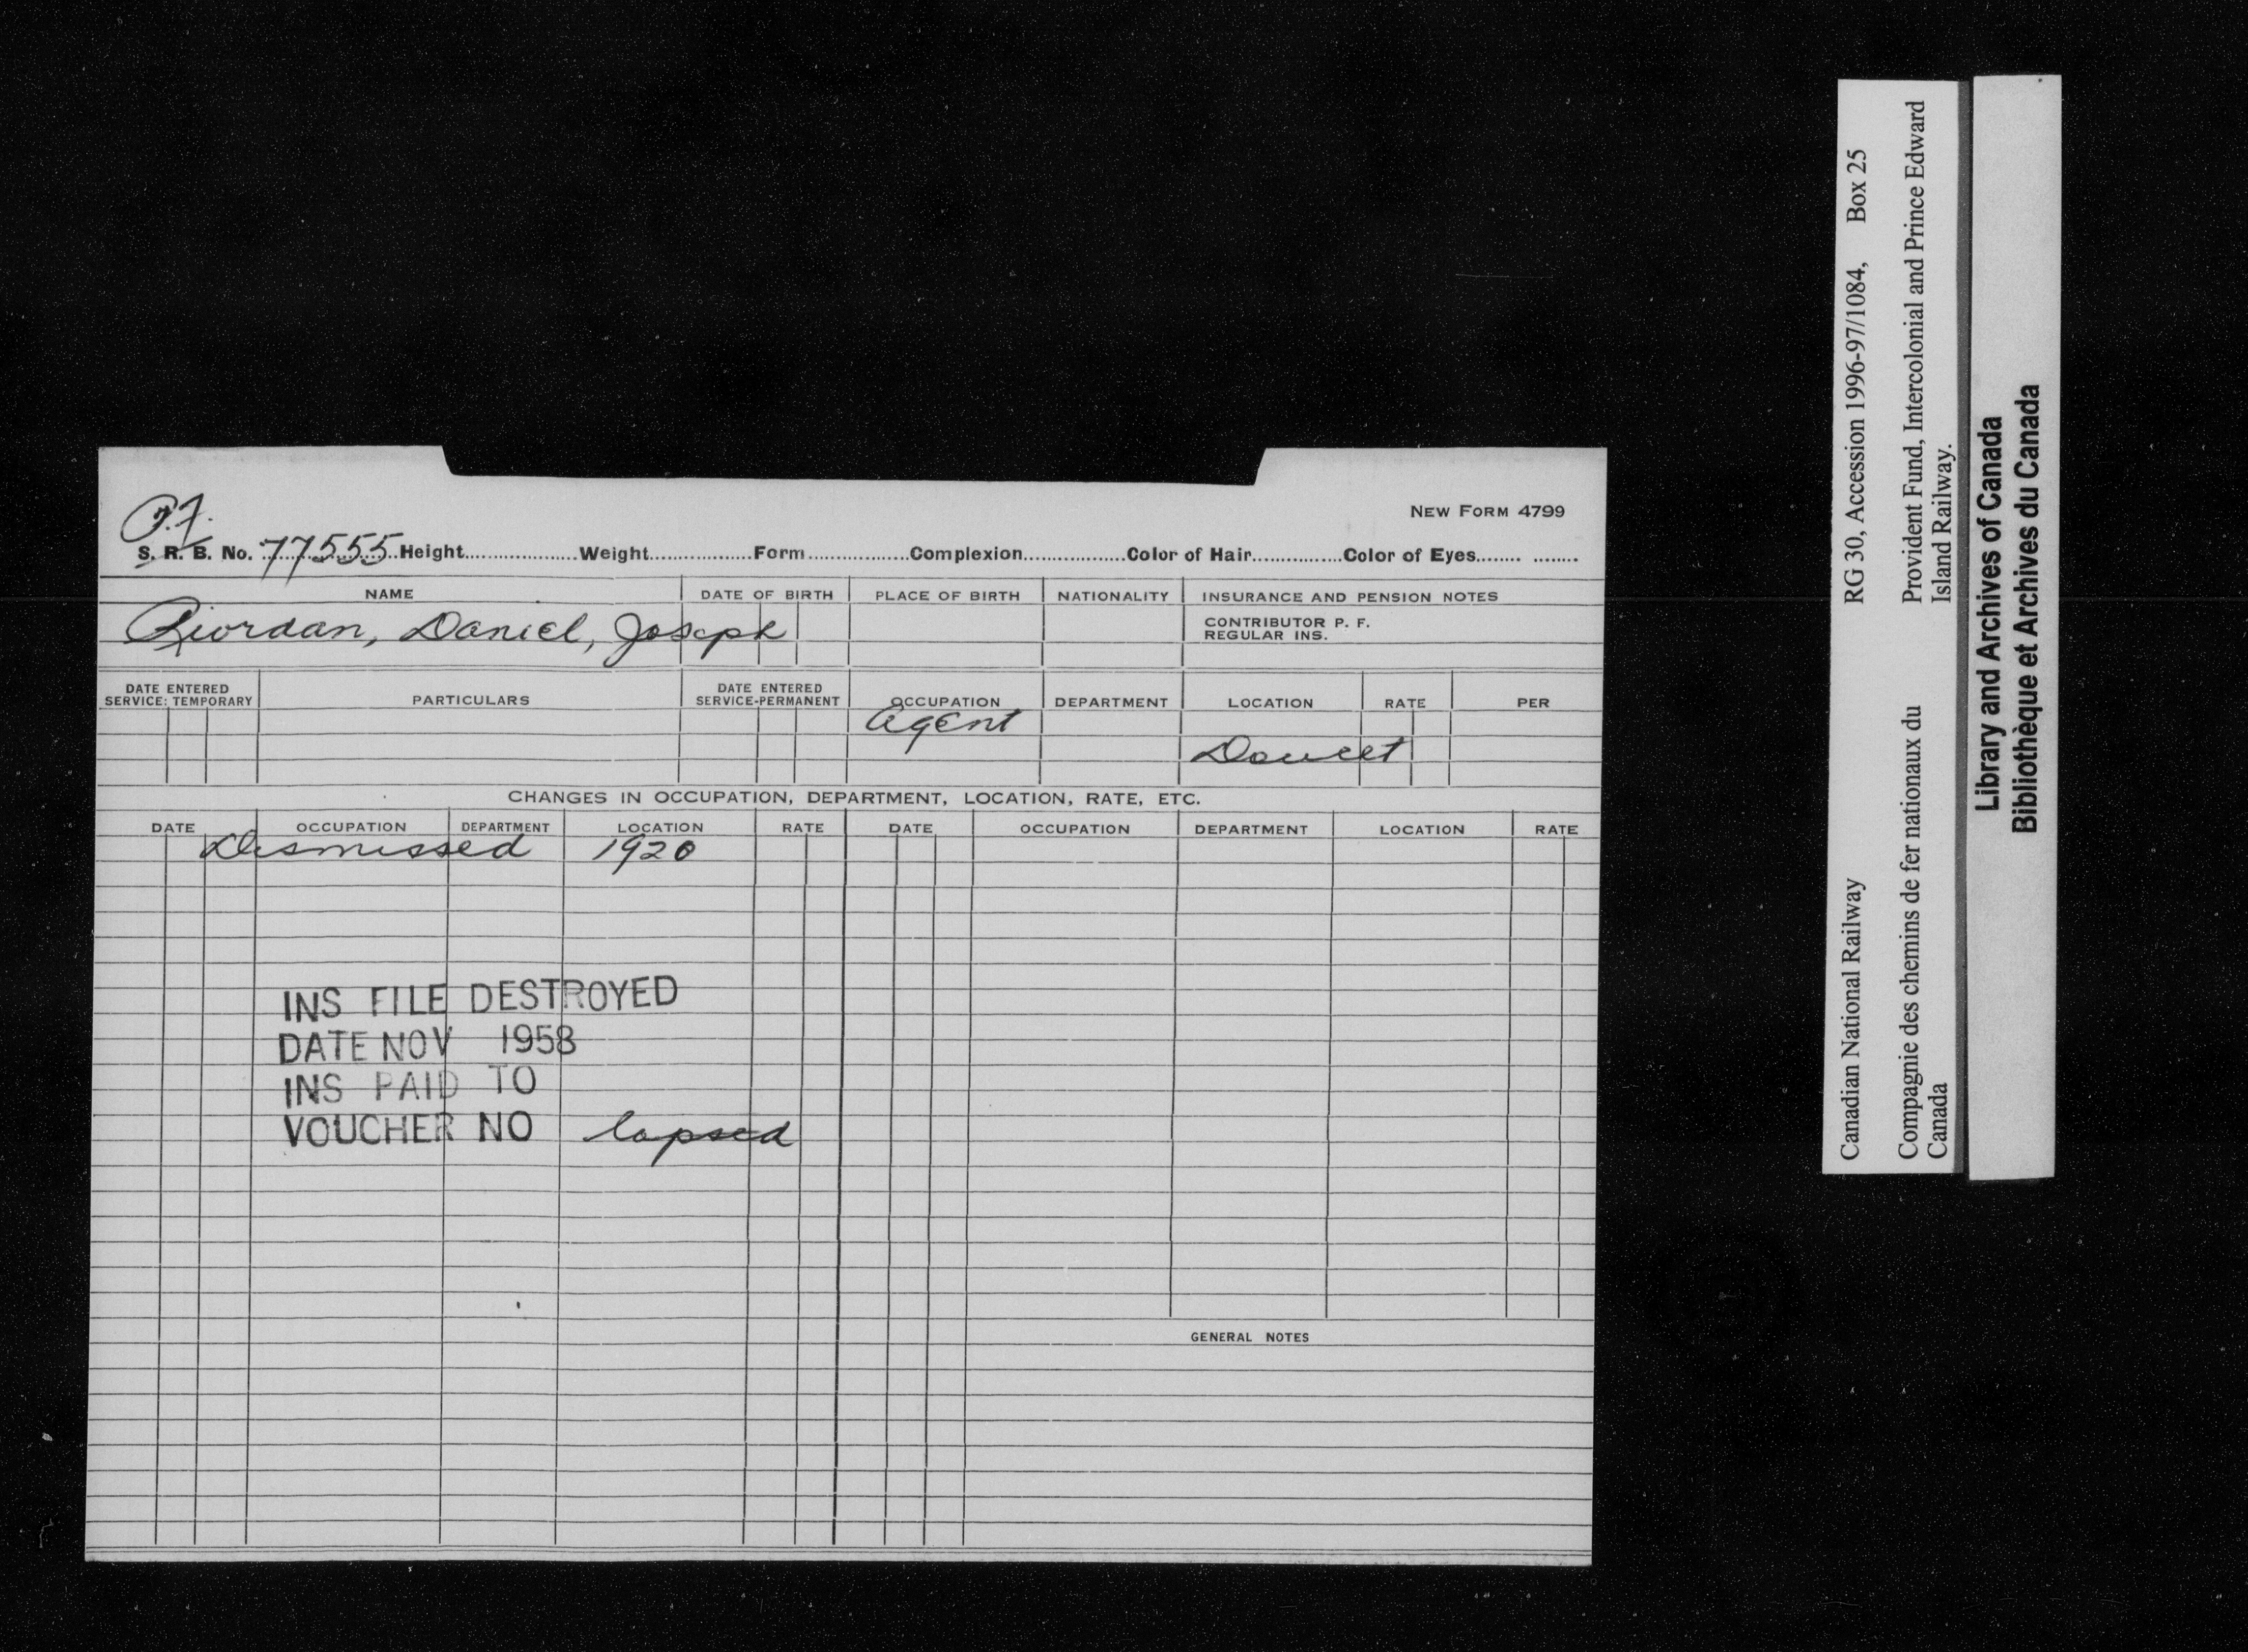 P.F.
NEW FORM 4799
S. R. B. No. 77555 Height.................Weight................Form................Complexion................Color of Hair................Color of Eyes........ ........
NAME DATE OF BIRTH PLACE OF BIRTH NATIONALITY INSURANCE AND PENSION NOTES
Riordan, Daniel, Joseph
CONTRIBUTOR P. F.
REGULAR INS.
DATE ENTERED SERVICE: TEMPORARY PARTICULARS DATE ENTERED SERVICE-PERMANENT OCCUPATION DEPARTMENT LOCATION RATE PER
Agent
Doucet
CHANGES IN OCCUPATION, DEPARTMENT, LOCATION, RATE, ETC.
DATE OCCUPATION DEPARTMENT LOCATION RATE DATE OCCUPATION DEPARTMENT LOCATION RATE
Dismissed 1920
INS FILE DESTROYED
DATE NOV 1958
INS PAID TO
VOUCHER NO lapsed
GENERAL NOTES
Canadian National Railway RG 30, Accession 1996-97/1084, Box 25
Compagnie des chemins de fer nationaux du Provident Fund, Intercolonial and Prince Edward
Canada Island Railway.
Library and Archives of Canada
Bibliothèque et Archives du Canada